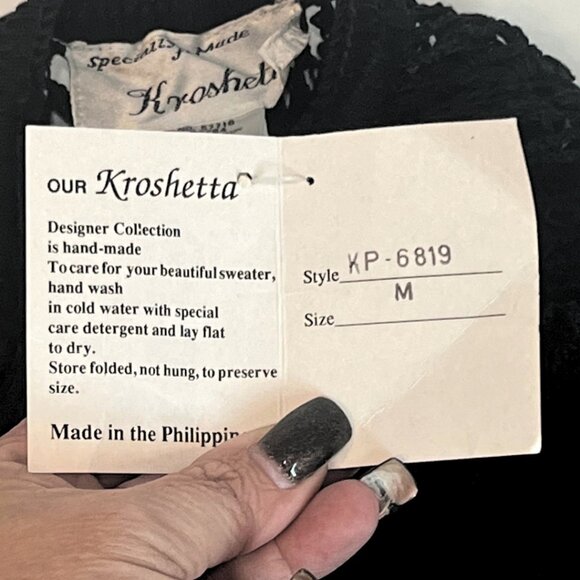 Specially Made
Kroshetta
OUR Kroshetta
Designer Collection
is hand-made
To care for your beautiful sweater,
hand wash
in cold water with special
care detergent and lay flat
to dry.
Store folded, not hung, to preserve
size.
Made in the
Style KP-6819
Size M